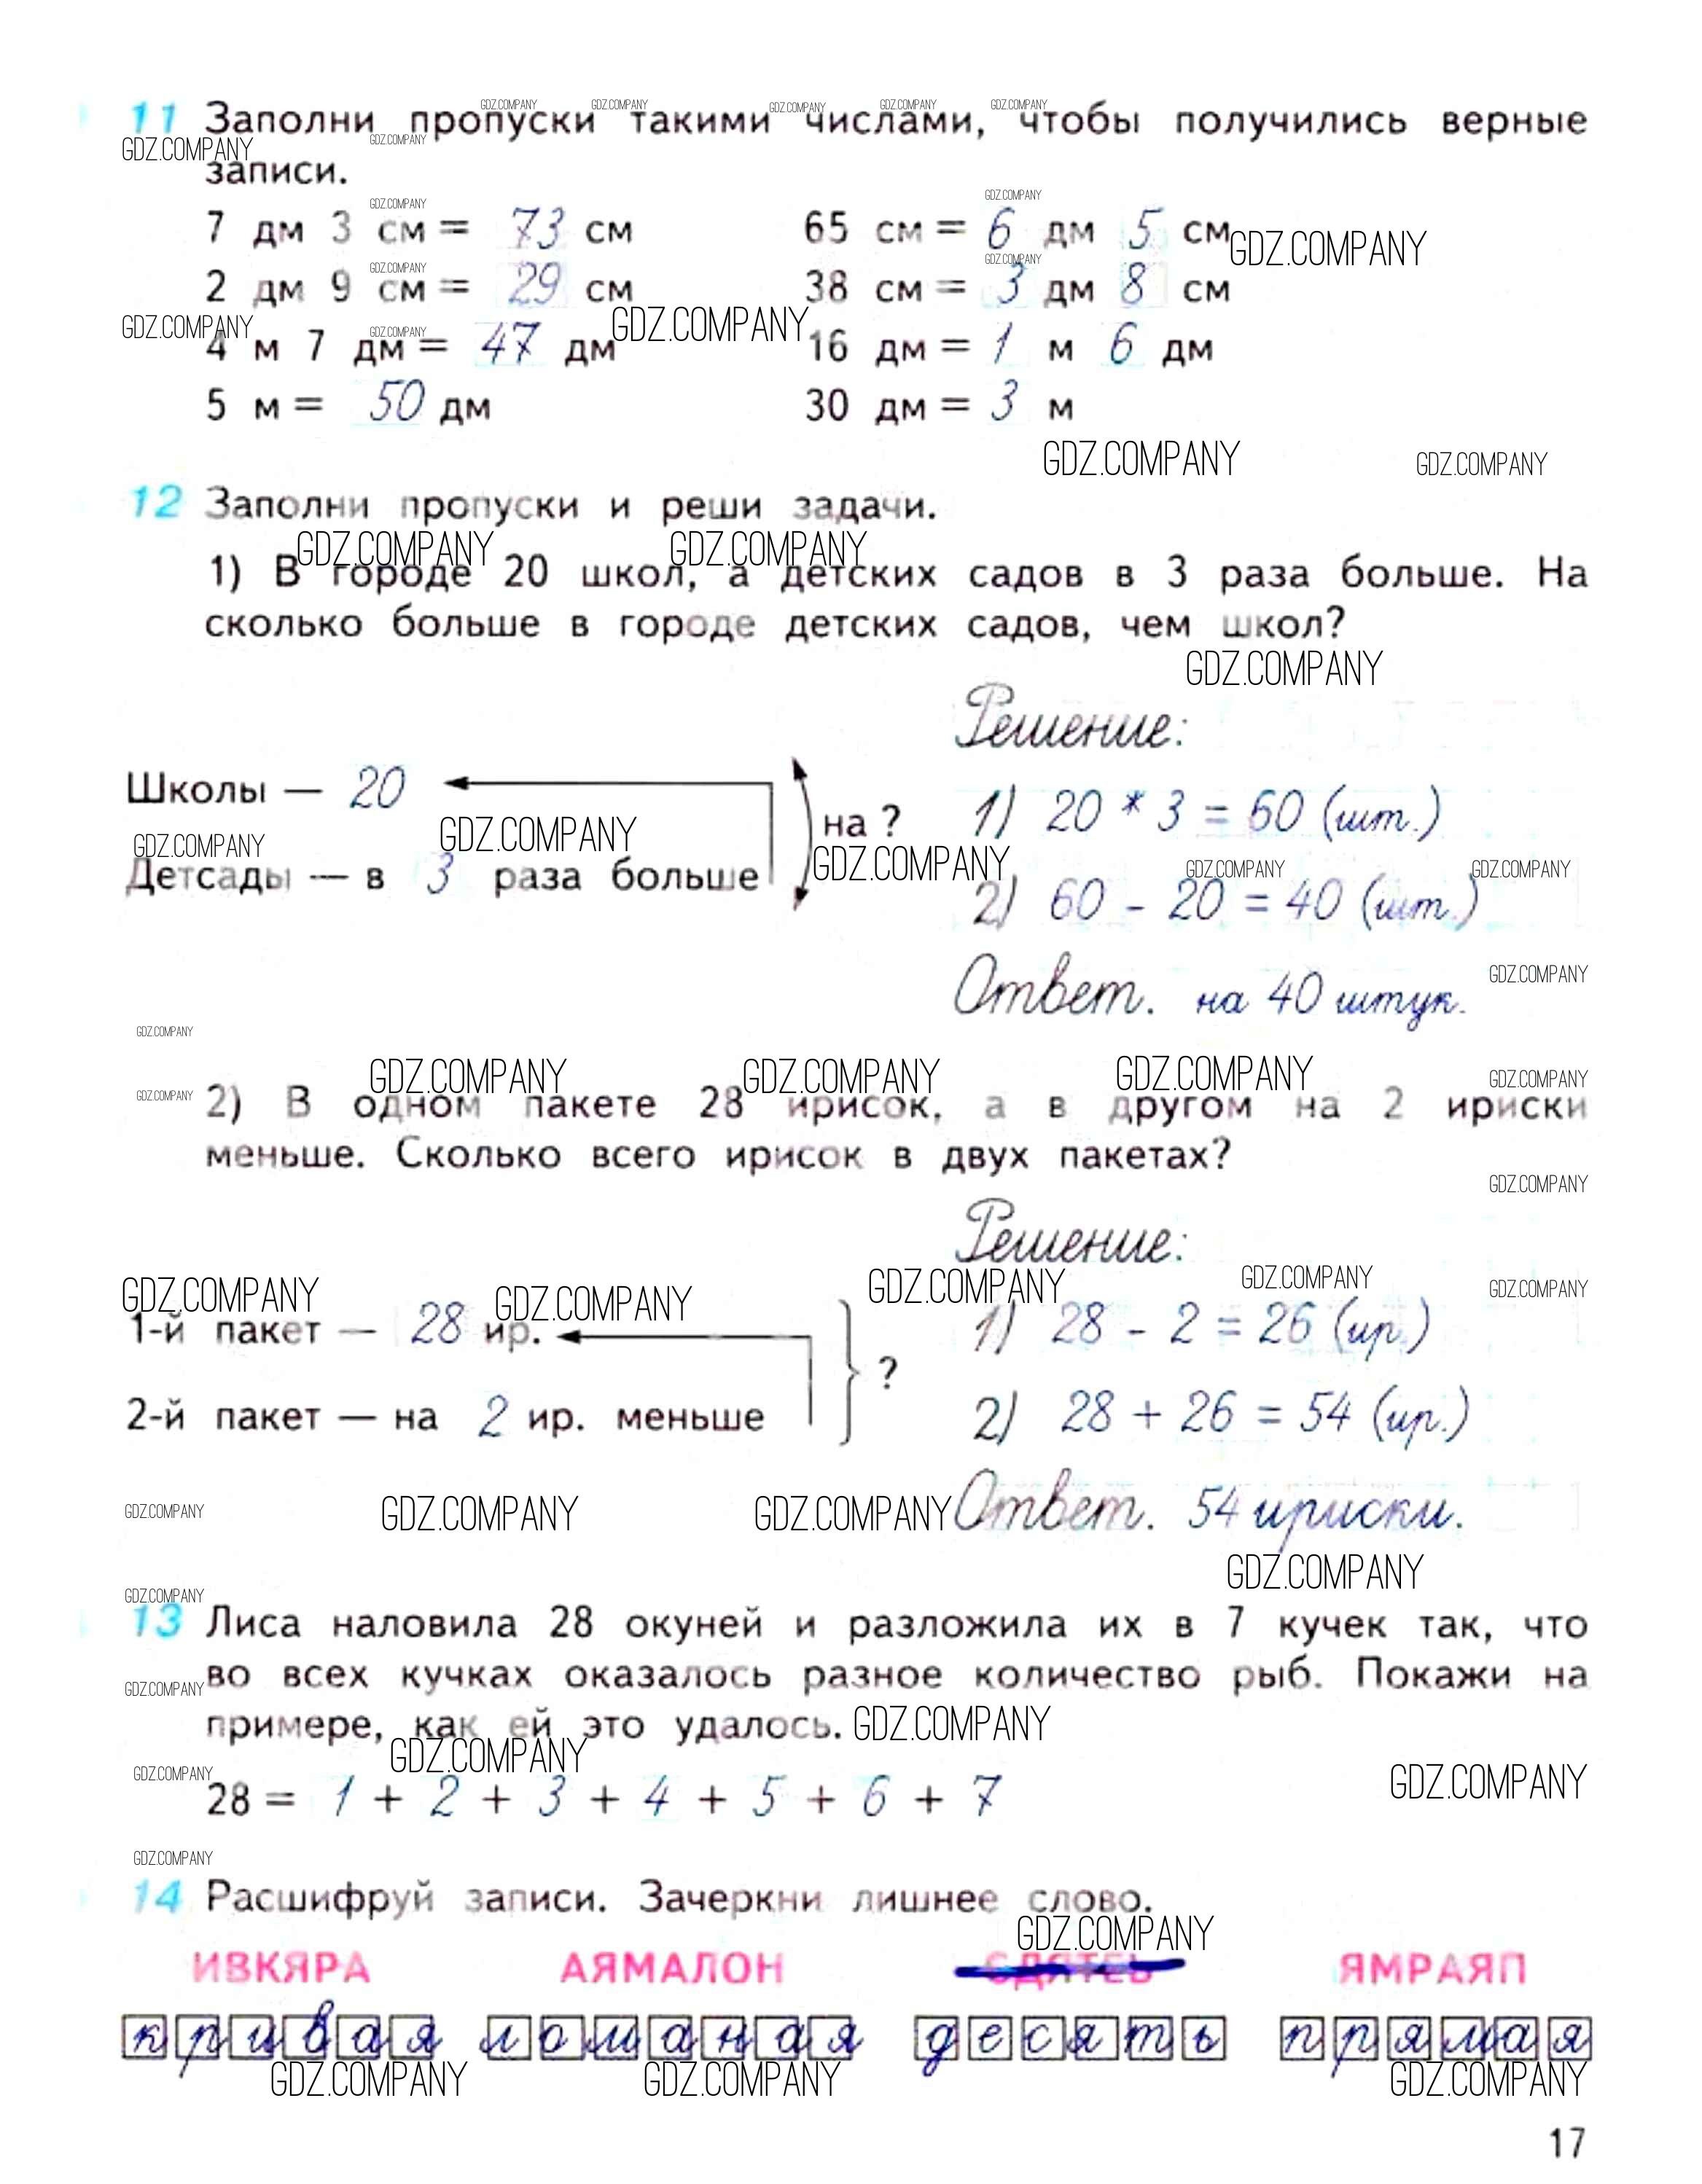 11 Заполни пропуски такими числами, чтобы получились верные
записи.
7 дм 3 см = 73 см 65 см = 6 дм 5 см
2 дм 9 см = 29 см 38 см = 3 дм 8 см
4 м 7 дм = 47 дм 16 дм = 1 м 6 дм
5 м = 50 дм 30 дм = 3 м
12 Заполни пропуски и реши задачи.
1) В городе 20 школ, а детских садов в 3 раза больше. На
сколько больше в городе детских садов, чем школ?
Решение:
Школы — 20 на ? 1) 20 * 3 = 60 (шт.)
Детсады — в 3 раза больше 2) 60 - 20 = 40 (шт.)
Ответ. на 40 штук.
2) В одном пакете 28 ирисок, а в другом на 2 ириски
меньше. Сколько всего ирисок в двух пакетах?
Решение:
1-й пакет — 28 ир. ? 1) 28 - 2 = 26 (ир.)
2-й пакет — на 2 ир. меньше 2) 28 + 26 = 54 (ир.)
Ответ. 54 ириски.
13 Лиса наловила 28 окуней и разложила их в 7 кучек так, что
во всех кучках оказалось разное количество рыб. Покажи на
примере, как ей это удалось.
28 = 1 + 2 + 3 + 4 + 5 + 6 + 7
14 Расшифруй записи. Зачеркни лишнее слово.
ИВКЯРА АЯМАЛОН СДЯТЕЬ ЯМРАЯП
кривая ломаная десять прямая
17
GDZ.COMPANY